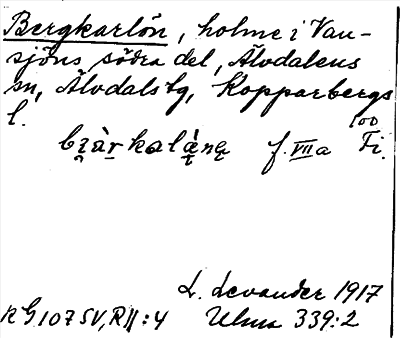 Bergkarlön, holme i Van-
sjöns södra del, Älvdalens
sn, Älvdals tg, Kopparbergs
l.
100
f. VII a Fi.
L. Levander 1917
RG 107 SV, R II : 4 Ulma 339:2